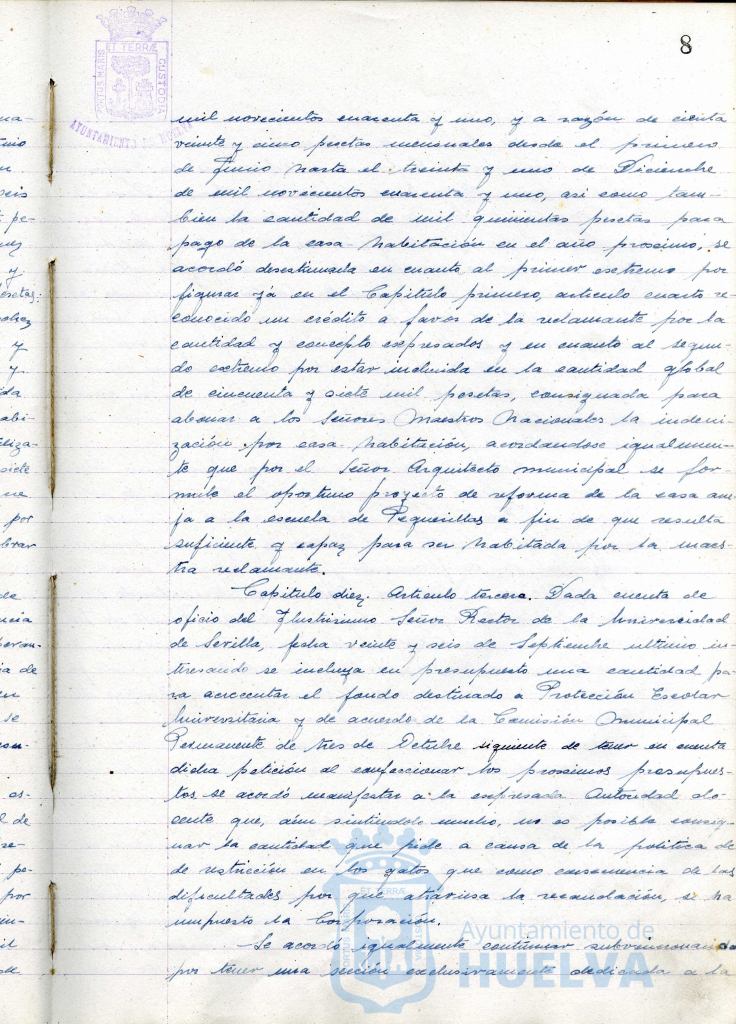 8
PORTUS MARIS ET TERRÆ CUSTODIA
AYUNTAMIENTO DE HUELVA
mil novecientos cuarenta y uno, y a razón de ciento
veinte y cinco pesetas mensuales desde el primero
de Junio hasta el treinta y uno de Diciembre
de mil novecientos cuarenta y uno, asi como tam-
bien la cantidad de mil quinientas pesetas para
pago de la casa-habitación en el año proximo, se
acordó desestimarla en cuanto al primer extremo por
figurar ya en el Capitulo primero, articulo cuarto re-
conocido un crédito a favor de la reclamante por la
cantidad y concepto expresados y en cuanto al segun-
do extremo por estar incluida en la cantidad global
de cincuenta y siete mil pesetas, consignada para
abonar a los Señores Maestros Nacionales la indemni-
zación por casa-habitación, acordandose igualmen-
te que por el Señor Arquitecto municipal se for-
mule el oportuno proyecto de reforma de la casa ane-
ja a la escuela de Pequeñitas a fin de que resulte
suficiente y capaz para ser habitada por la maes-
tra reclamante.
Capitulo diez. Articulo tercero. Dada cuenta de
oficio del Ilustrisimo Señor Rector de la Universidad
de Sevilla, fecha veinte y seis de Septiembre ultimo in-
teresando se incluya en presupuesto una cantidad pa-
ra acrecentar el fondo destinado a Protección Escolar
Universitaria y de acuerdo de la Comisión Municipal
Permanente de tres de Octubre siguiente de tener en cuenta
dicha petición al confeccionar los proximos presupues-
tos se acordó manifestar a la expresada Autoridad do-
cente que, aun sintiendolo mucho, no es posible consig-
nar la cantidad que pide a causa de la politica de
de restricción en los gatos que como consecuencia de las
dificultades por que atraviesa la recaudación, se ha
impuesto la Corporación.
Se acordó igualmente continuar subvencionando
por tener una sección exclusivamente dedicada a la
Ayuntamiento de
HUELVA